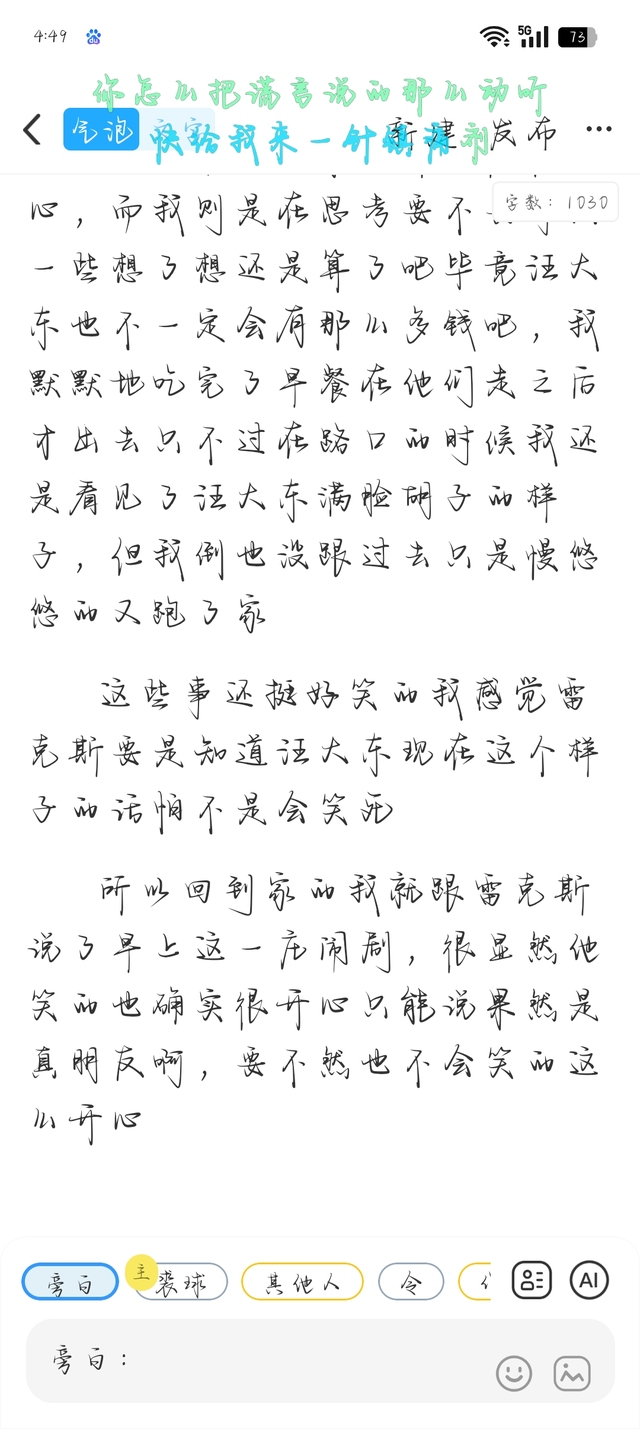 4:49
5G
73
你怎么把谎言说的那么动听
气泡
快给我来一针镇
剂
新建
发布
字数：1030
心，而我则是在思考要不
一些想了想还是算了吧毕竟汪大
东也不一定会有那么多钱吧，我
默默地吃完了早餐在他们走之后
才出去只不过在路口的时候我还
是看见了汪大东满脸胡子的样
子，但我倒也没跟过去只是慢悠
悠的又跑了家
这些事还挺好笑的我感觉雷
克斯要是知道汪大东现在这个样
子的话怕不是会笑死
所以回到家的我就跟雷克斯
说了早上这一庄闹剧，很显然他
笑的也确实很开心只能说果然是
真朋友啊，要不然也不会笑的这
么开心
旁白
主
裘球
其他人
令
AI
旁白：